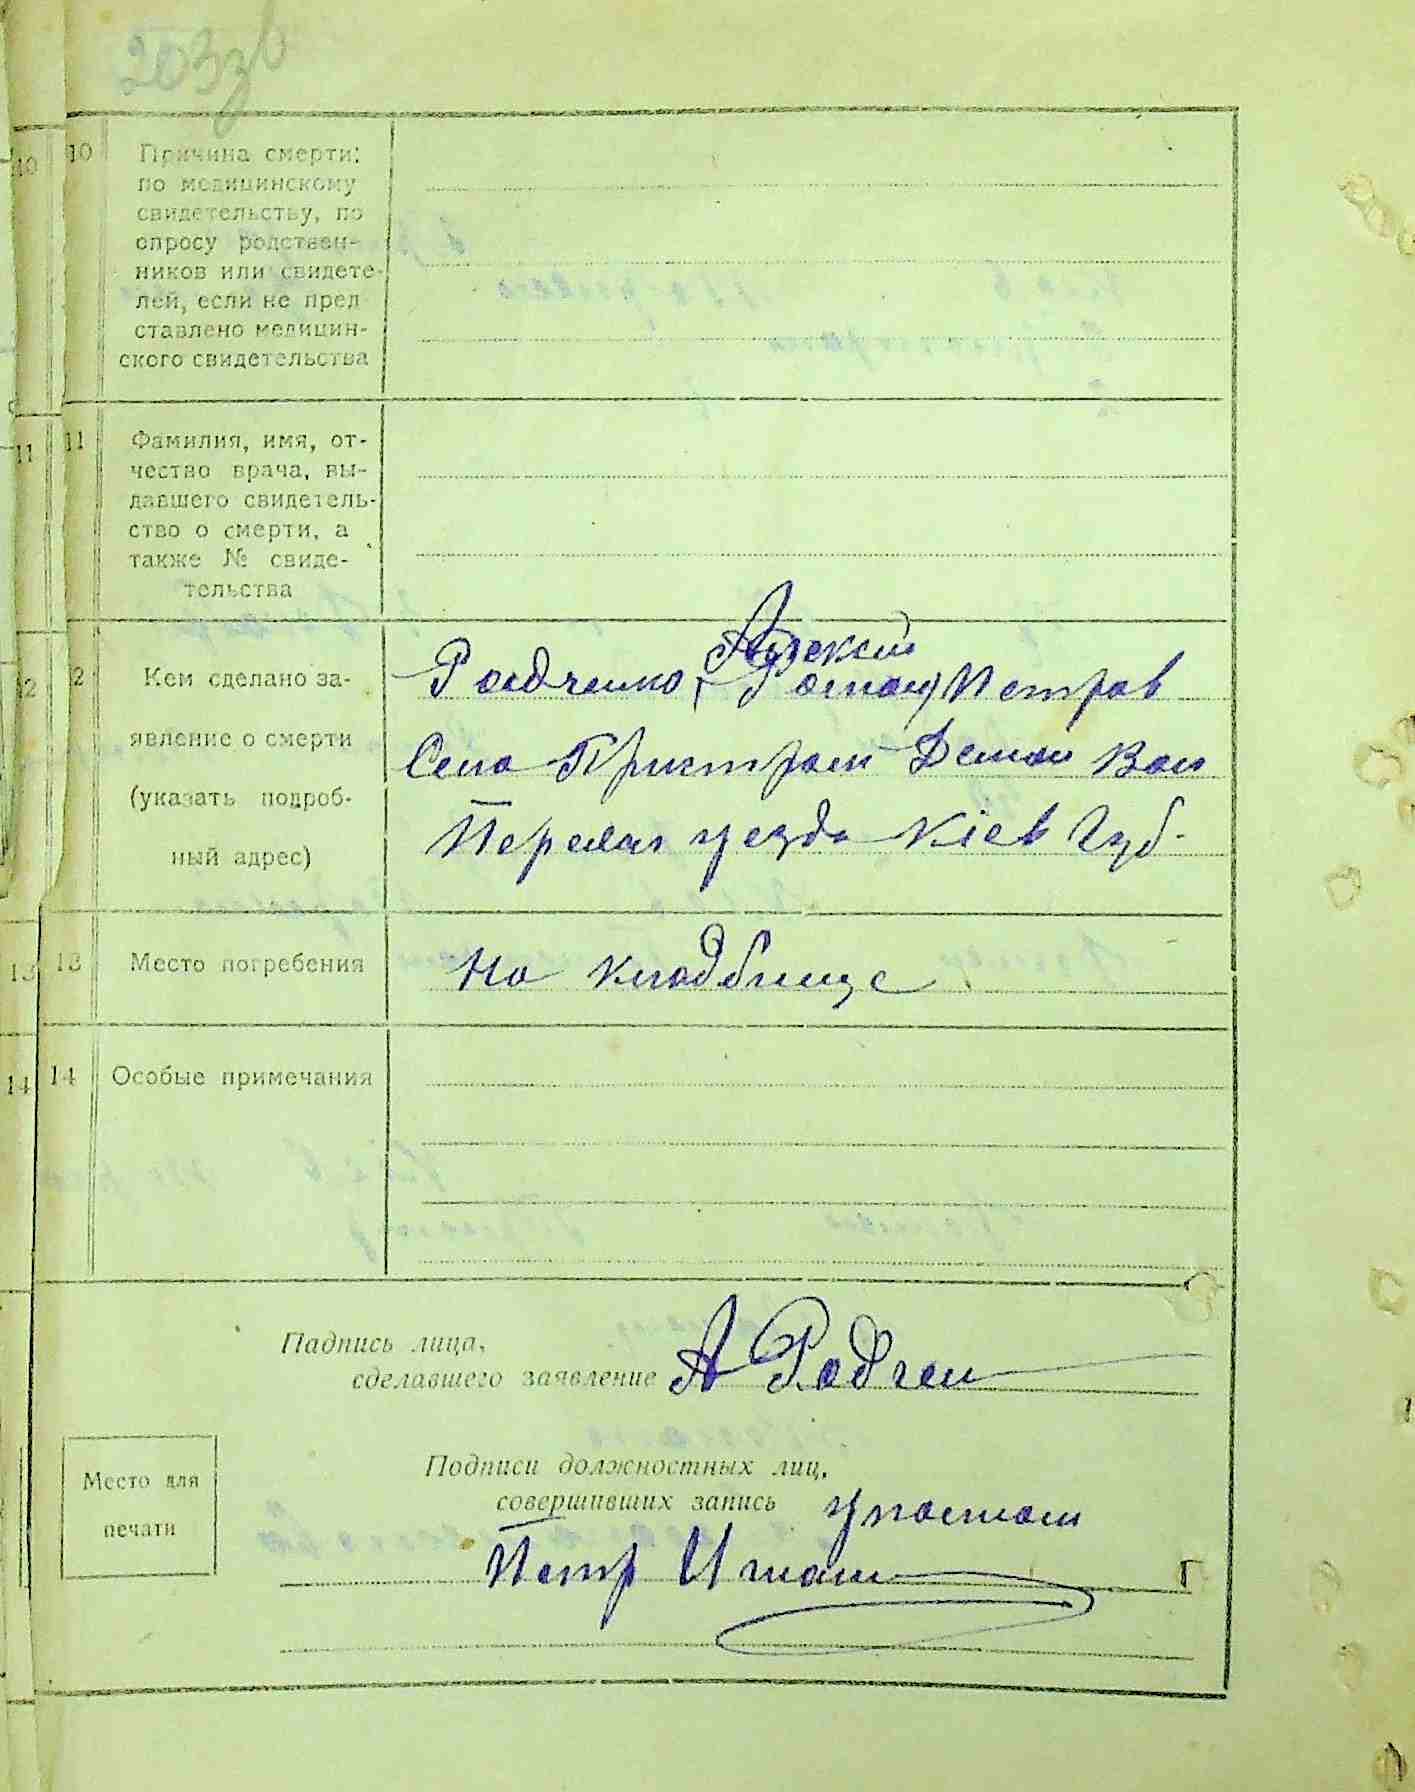 203
10 Причина смерти:
по медицинскому
свидетельству, по
опросу родствен-
ников или свидете-
лей, если не пред
ставлено медицин-
ского свидетельства
11 Фамилия, имя, от-
чество врача, вы-
давшего свидетель-
ство о смерти, а
также № свиде-
тельства
2 Кем сделано за-
явление о смерти
(указать подроб-
ный адрес)
Алексей
Радченко, (Роман) Петров
Село Пристром Демян Вол
Переяс уезда Кіев Губ-
13 Место погребения
На кладбище
14 Особые примечания
Падпись лица,
сделавшего заявление А Радчен
Место для
печати
Подписи должностных лиц,
совершивших запись
Петр
Г
10
11
2
13
14